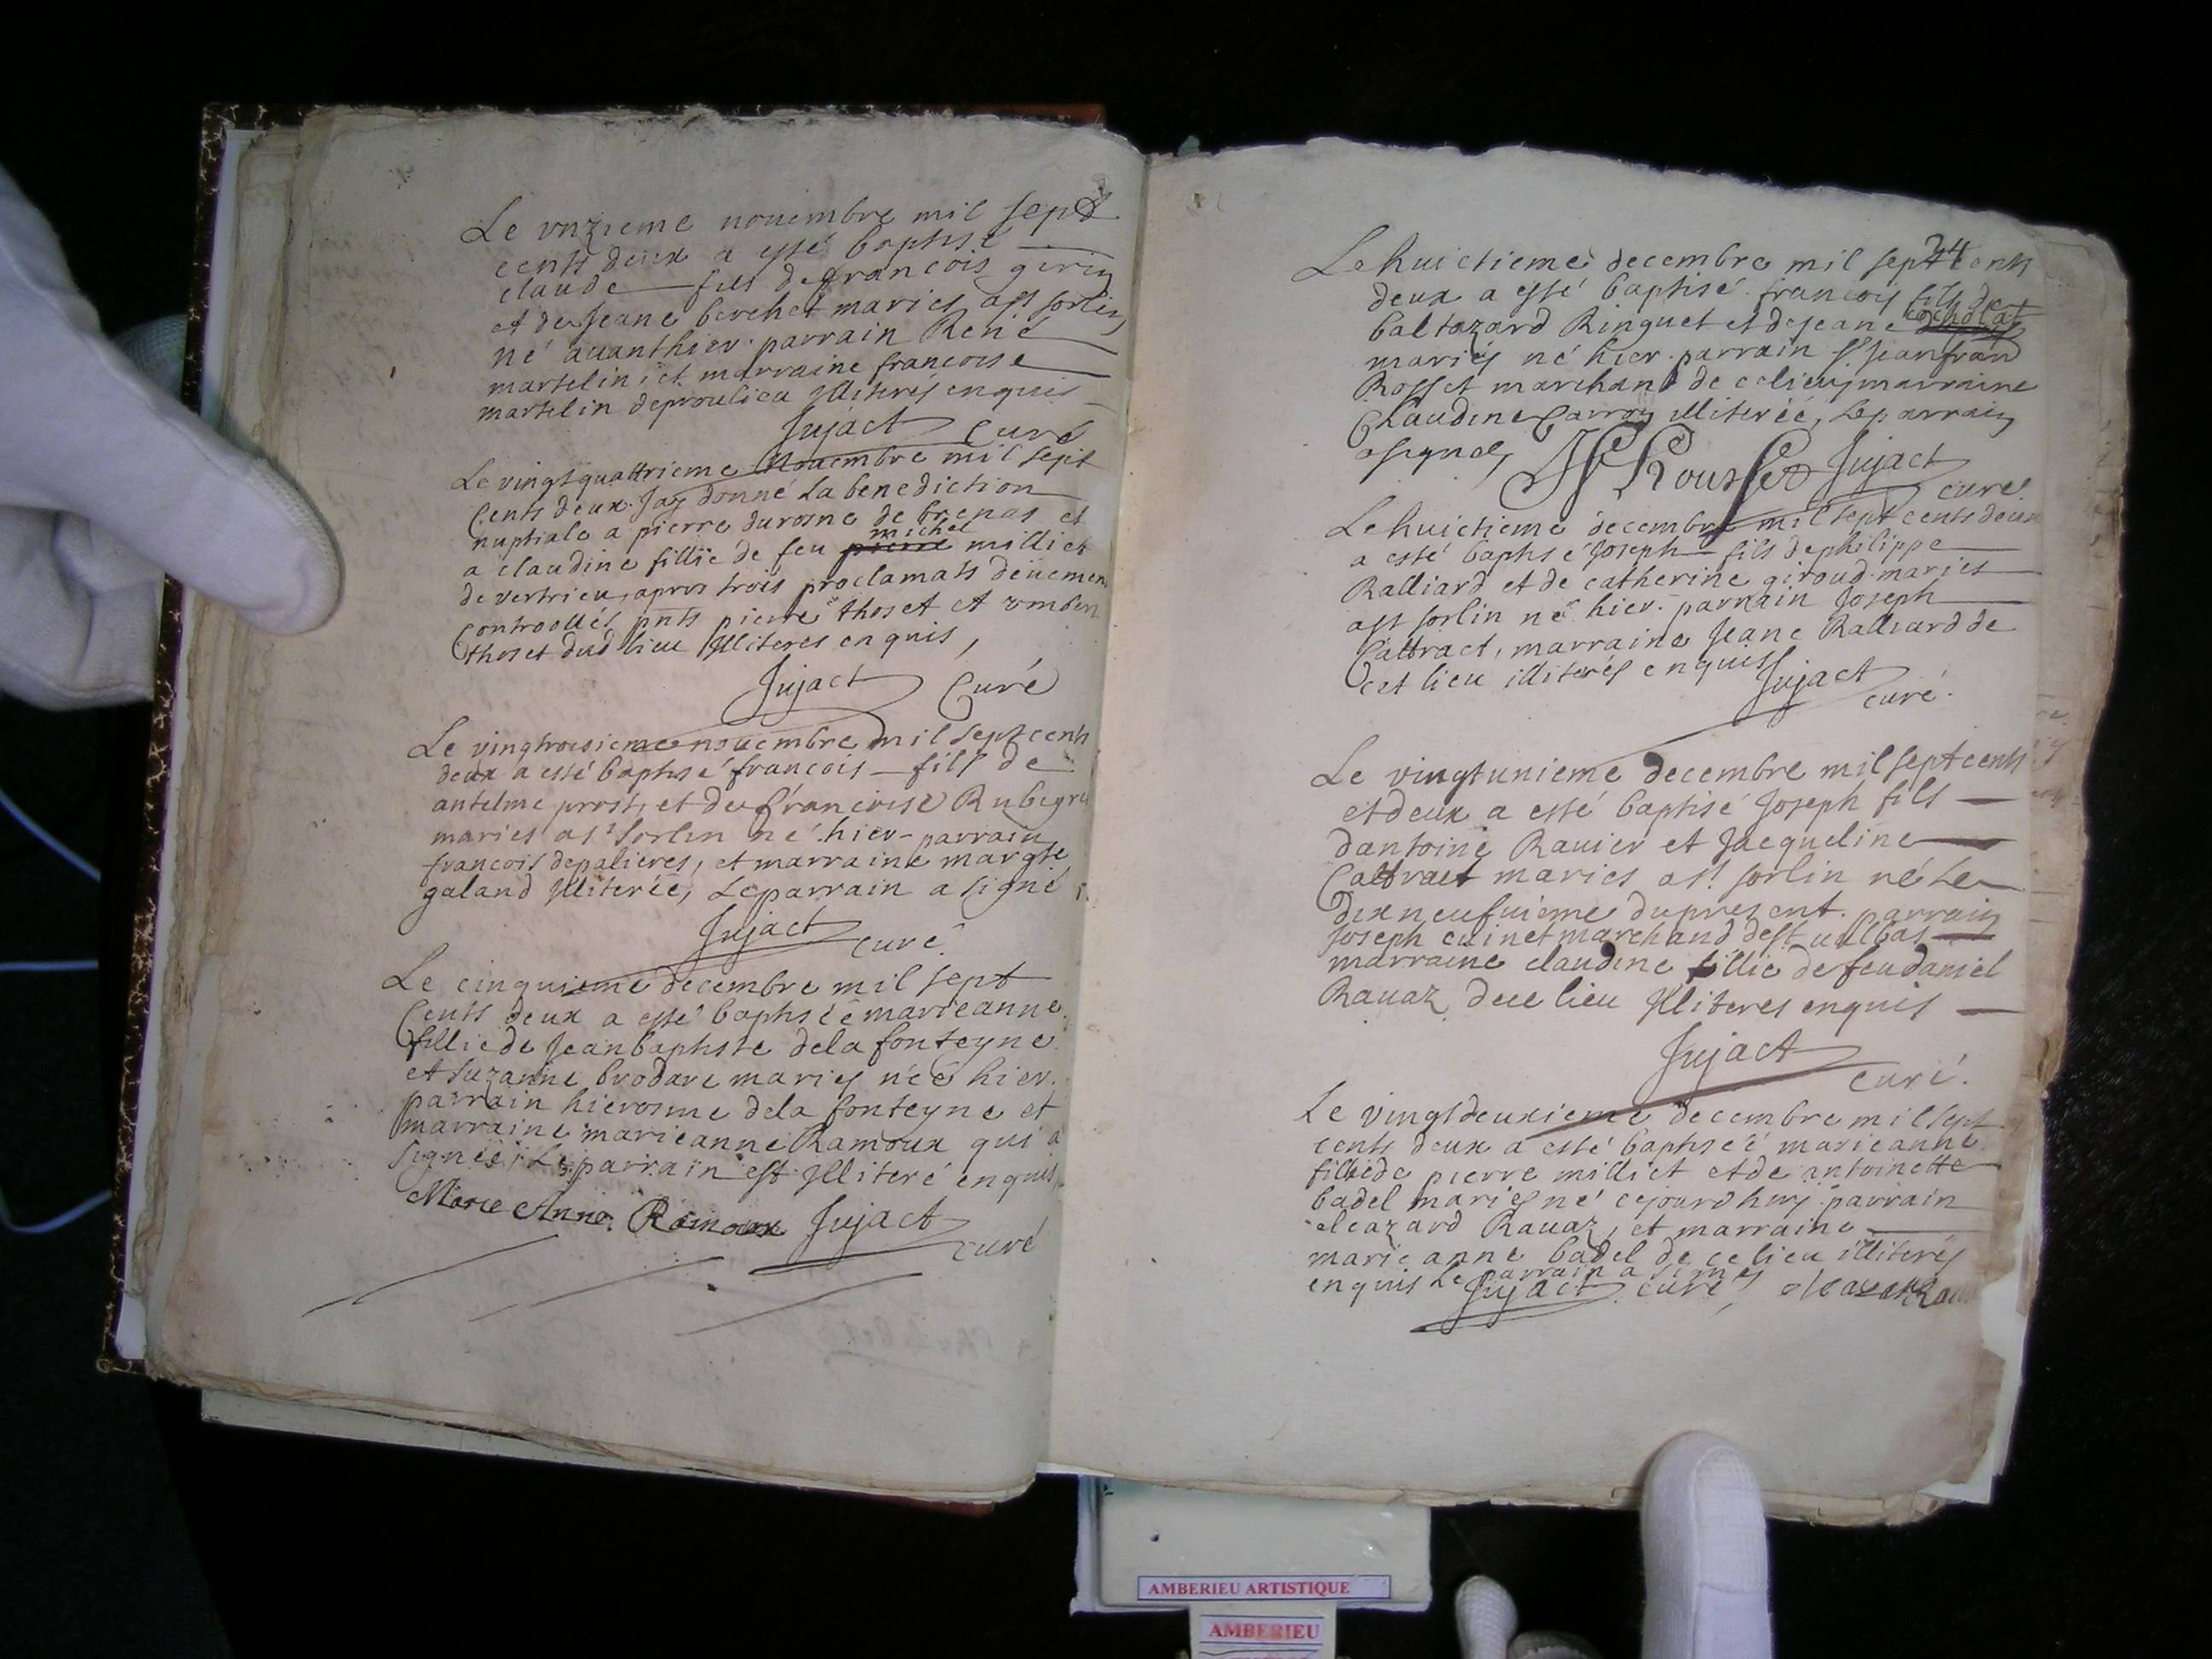 Le vnzieme nouembre mil sept
cents deux a esté baptisé
claude fils de francois gerin
et de Jeane berchet maries a st sorlin
né auanthier parrain René
martelin, et marraine francoise
martelin deproulieu Illiteres enquis
Jujact Curé
Le vingtquattrieme Nouembre mil sept
Cents deux Jay donné La benediction
nuptiale a pierre durosne de brenas et
michel
a claudine fillie de feu pierre milliet
de vertrieu, apres trois proclamats deüemen
Controollés pnts pierre thoset et
thoset dud lieu Illiteres enquis,
Jujact Curé
Le vingtroisieme nouembre mil sept cents
deux a esté baptisé francois fils de
antelme prost, et de francoise Rubegre
maries a st sorlin né hier parrain
francois depalieres, et marraine margte
galand Illiterée, Leparrain a signé
Jujact curé
Le cinquieme decembre mil sept
Cents deux a esté baptisée marieanne
fillie de Jeanbaptiste dela fonteyne
et Suzanne brodare maries née hier.
parrain hierosme dela fonteyne et
marraine marieanne Ramoux qui a
signée, Leparrain est Illiteré enquis
Marie Anne Ramoux Jujact
curé
24
Le huictieme decembre mil sept cents
deux a esté baptisé francois fils de
baltazard Ringuet et de Jeane cocholat
mariés né hier parrain Sr Jeanfran
Rosset marchand de celieu, marraine
Claudine Carron illiterée, Leparrain
a signé, Rousset Jujact
curé
Le huictieme decembre mil sept cents deux
a esté baptisé Joseph fils dephilippe
Ralliard et de catherine giroud maries
a st sorlin né hier parrain Joseph
Cattract, marraine Jeane Ralliard de
cet lieu illiterés enquis
Jujact
curé
Le vingtunieme decembre mil sept cents
et deux a esté baptisé Joseph fils
dantoine Rauier et Jacqueline
Cattract maries a st sorlin né Le
dixneufuieme dupresent. parrain
Joseph cuinet marchand de st uulbas
marraine claudine fillie de feu daniel
Rauaz dece lieu Illiteres enquis
Jujact
curé.
Le vingtdeuxieme decembre mil sept
cents deux a esté baptisée marieanne
fillie de pierre milliet et de antoinette
badel maries né cejourdhuy parrain
eleazard Rauaz, et marraine
marie anne badel de ce lieu illiterés
enquis Le parrain a signé
Jujact curé,
AMBERIEU ARTISTIQUE
AMBERIEU